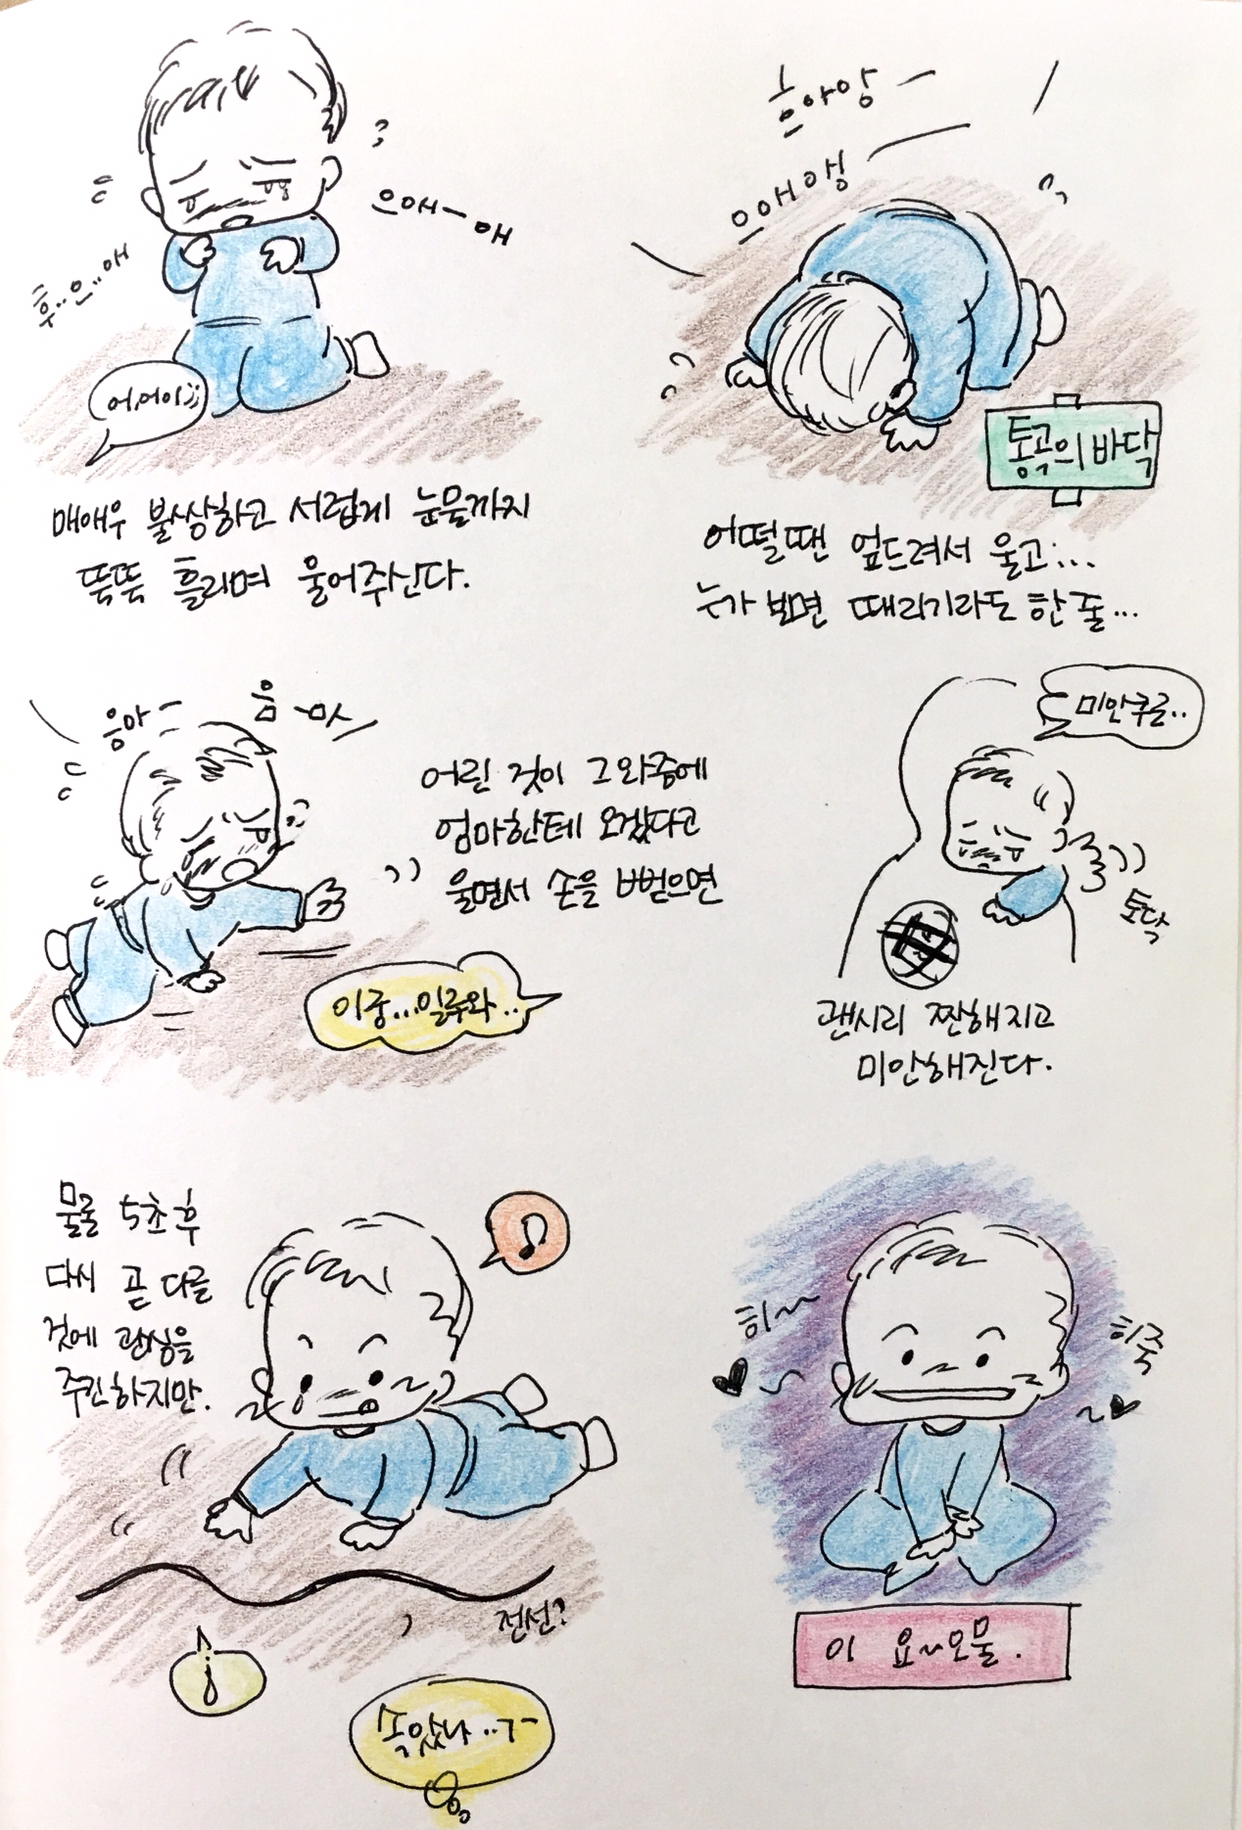 으애ー애
후..은..애
어,어이;;
매애우 불쌍하고 서럽게 눈물까지
뚝뚝 흘리며 울어주신다.
흐아앙ー
으애앵
통곡의 바닥
어떨땐 엎드려서 울고...
누가 보면 때리기라도 한 줄...
응마ー
음ー마
어린 것이 그 와중에
엄마한테 오겠다고
울면서 손을 뻗으면
이궁...일루와..
미안쿠로..
토닥
괜시리 짠해지고
미안해진다.
물론 5초후
다시 곧 다른
것에 관심을
주긴하지만.
전선?
속았나..ㄱ-
히~
히죽
이 요~오물.